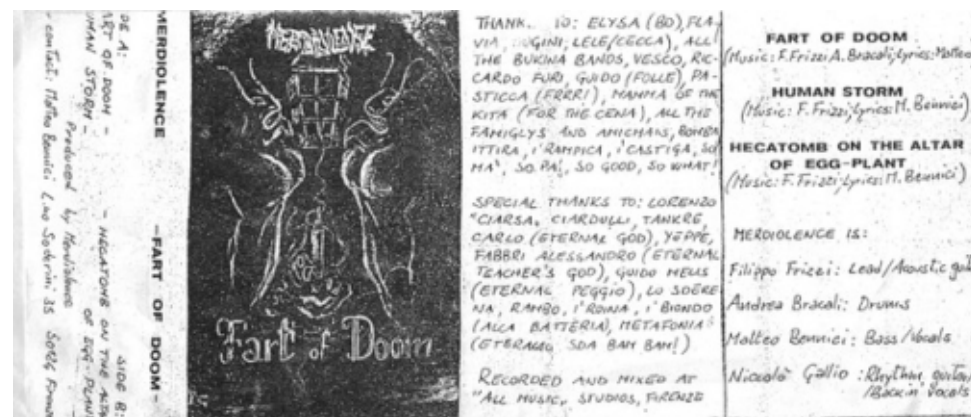 DE A:
ART OF DOOM -
UMAN STORM -
SIDE B:
- HECATOMB ON THE ALTAR
OF EGG-PLANT
Produced by Merdiolence
- contact: Matteo Bennici
MERDIOLENCE
-FART OF DOOM-
MERDIOLENCE
Fart of Doom
THANK. TO: ELYSA (BO), FLA-
VIA, LELE/CECCA), ALL
THE BUKINA BANDS, VESCO, RIC-
CARDO FURI, GUIDO (FOLLE), PA-
STICCA (FRRR!), MAMMA OF THE
KITA (FOR THE CENA), ALL THE
FAMIGLYS AND AMICHANS, BOMBA
ITTIRA, I'RAMPICA, I'CASTIGA, SO
MA', SO PA', SO GOOD, SO WHAT!
SPECIAL THANKS TO: LORENZO
"CIARSA, CIARDULLI, TANKRE,
CARLO (ETERNAL GOD), YEPPE,
FABBRI ALESSANDRO (ETERNAL
TEACHER'S GOD), GUIDO MELIS
(ETERNAL PEGGIO), LO SDERE
NA, RAMBO, I'ROINA, I'BIONDO
(ALLA BATTERIA), METAFONIA
SDA BAM BAM!)
RECORDED AND MIXED AT
"ALL MUSIC" STUDIOS, FIRENZE
FART OF DOOM
(Music: F. Frizzi A. Bracali; Lyrics: Matteo
HUMAN STORM
(Music: F. Frizzi; Lyrics: M. Bennici)
HECATOMB ON THE ALTAR
OF EGG-PLANT
(Music: F. Frizzi; Lyrics: M. Bennici)
MERDIOLENCE IS:
Filippo Frizzi: Lead/Acoustic guit
Andrea Bracali: Drums
Matteo Bennici: Bass/Vocals
Niccolò Gallio: Rhythm guitar/
/Backin' vocals